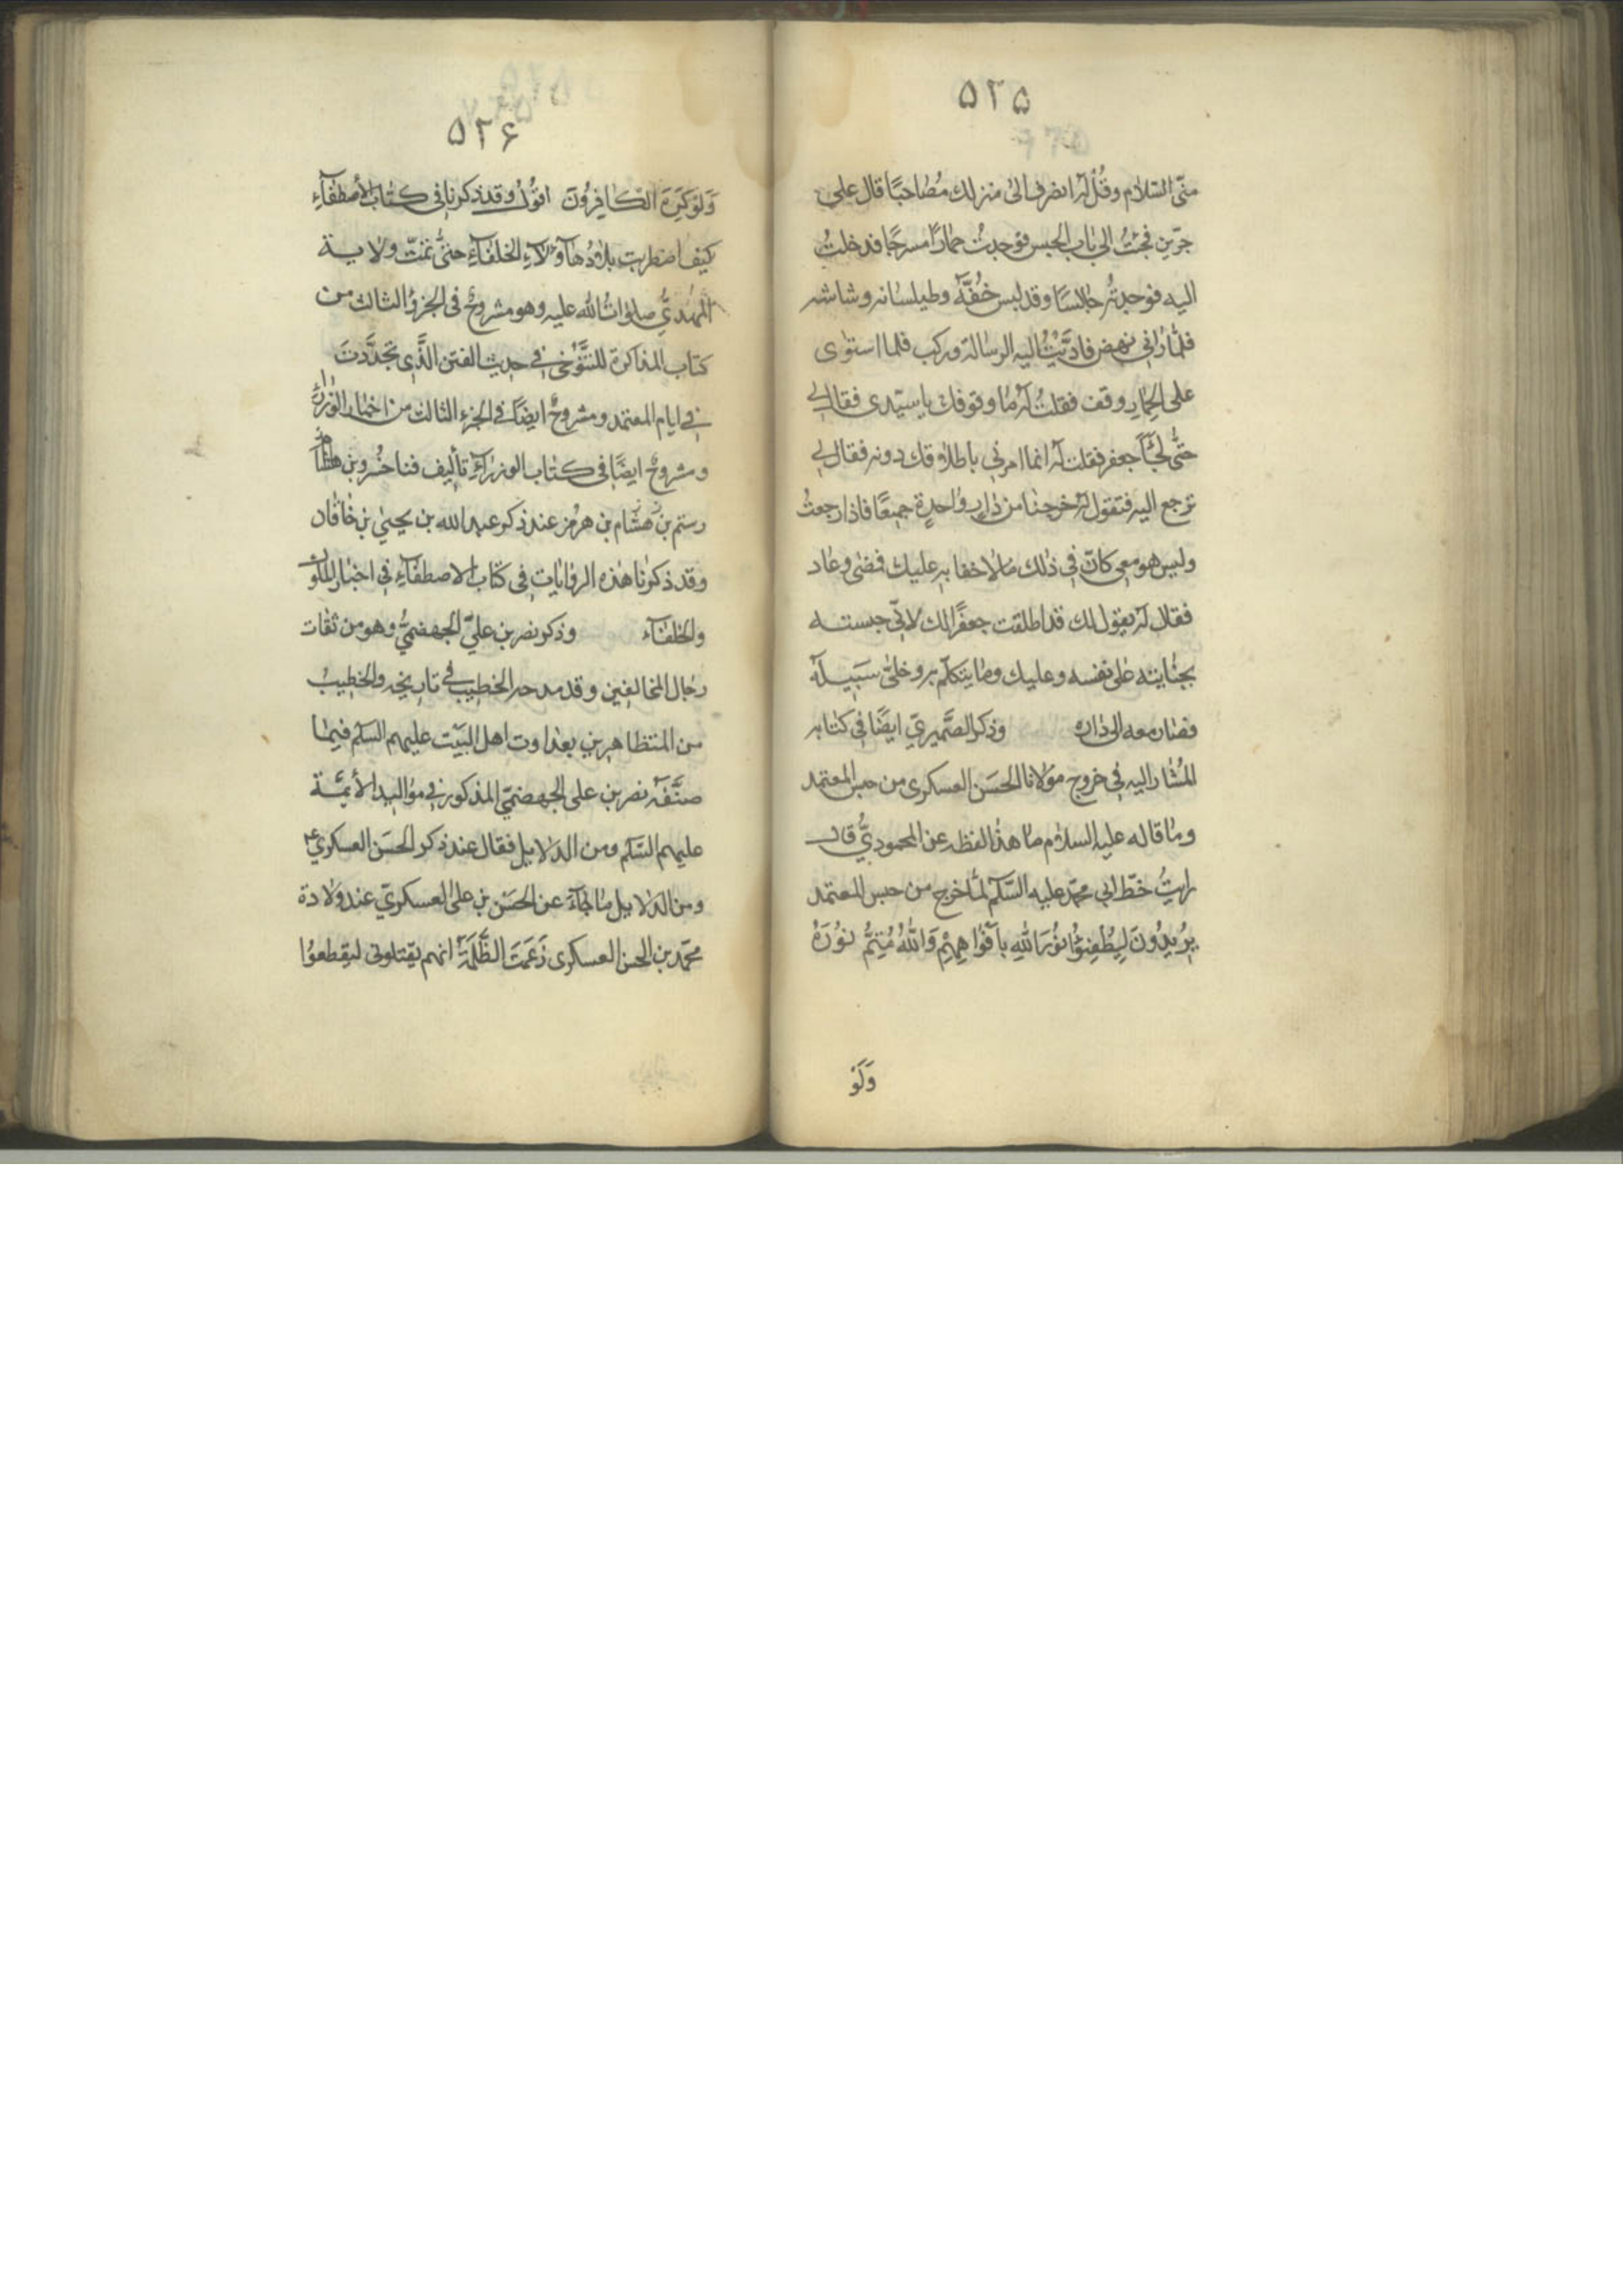 ۵۲۵
منّى السّلام وقُلْ له انصرف الى منزلك مُصَاحبًا قال على بن
جرّين فجئتُ الى باب الحبس فوجدتُ حمارًا مسرجًا فدخلتُ
اليه فوجدتُه جالسًا وقد لبس خُفَّه وطيلسانه وشاشه
فلمّا رانى نهض فادّيتُ اليه الرسالة وركب فلما استوى
على الحمارِ وقف فقلتُ له ما وقوفك يا سيّدى فقال لى
حتّى يجىَٔ جعفر فقلت له انما امرنى باطلاقك دونه فقال لى
ترجع اليه فتقول له خرجنا من دارٍ واحدةٍ جميعًا فاذا رجعتُ
وليس هو معى كان فى ذلك ما لا خفا به عليك فمضى وعاد
فقال له يقول لك قد اطلقت جعفرًا لك لانّى حبسته
بجنايته على نفسه وعليك وما يتكلّم به وخلّى سَبيله
فصار معه الى داره وذكر الصَّميرىّ ايضًا فى كتابه
المُشار اليه فى خروج مولانا الحَسَن العسكرى من حبس المعتمد
وما قاله عليه السلام ما هذا لفظه عن المحمودىُّ قال
رايتُ خطّ ابى محمّد عليه السّلم لمّا خرج من حبس المعتمد
يُرِيدُونَ لِيُطْفِئُوا نُوْرَ اللّٰهِ بِاَفْوَاهِهِمْ وَاللّٰهُ مُتِمُّ نُوْرَهُ
وَلَوْ
۵۲۶
وَلَوْ كَرِهَ الْكَافِرُونَ اقوُلُ وقد ذكرنا فى كتاب الأصطفآءِ
كيف اضطربت بلاد هاؤلآءِ الخلفآءِ حتىّ تمّت ولاية
المهدىّ صلوات الله عليه وهو مشروحٌ فى الجزؤ الثالث من
كتاب المذاكرة للتنّوخى فى حديث الفتن الّذى تجدّدت
فى ايام المعتمد ومشروحٌ ايضًا فى الجزءِ الثالث من اخبار الوزرآء
ومشروحٌ ايضًا فى كتاب الوزرآءِ تأليف فناخسرو بن
رستم بن هشام بن هرمز عند ذكر عبد الله بن يحيىٰ بن خاقان
وقد ذكرنا هذه الروايات فى كتاب الاصطفآءِ فى اخبار الملوك
والخلفآء وذكر نصر بن علىّ الجهضمىُّ وهو من ثقات
رجال المخالفين وقد مدحه الخطيب فى تاريخه والخطيبُ
من المتظاهرين بعداوت اهل البَيْت عليهم السّلم فيما
صنّفه نصر بن على الجهضمىّ المذكور فى مواليد الأئمّة
عليهم السّلم ومن الدلايل فقال عند ذكر الحَسَن العسكرى ع
ومن الدّلايل ما جآءَ عن الحَسَن بن على العسكرىّ عند ولادة
محمّد بن الحسن العسكرى زَعَمَت الظَّلَمَةُ انهم يقتلونى ليقطعوُا